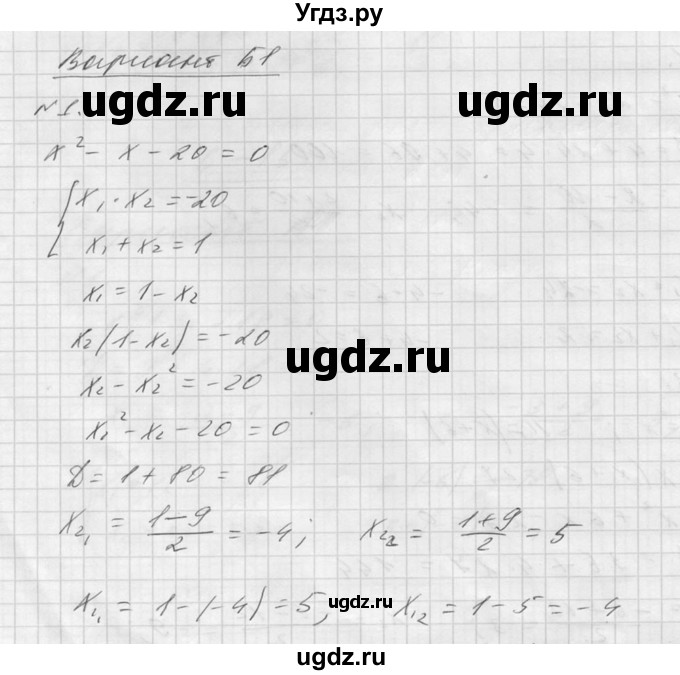 Угдз.ру
Вариант Б1
N 1.
ugdz.ru ugdz.ru
x² - x - 20 = 0
{ x₁ · x₂ = -20
x₁ + x₂ = 1
x₁ = 1 - x₂
x₂(1 - x₂) = -20
ugdz.ru
x₂ - x₂² = -20
x₁² - x₂ - 20 = 0
D = 1 + 80 = 81
x₂₁ = (1-9)/2 = -4; x₂₂ = (1+9)/2 = 5
x₁₁ = 1 - (-4) = 5; x₁₂ = 1 - 5 = -4
ugdz.ru
ugdz.ru